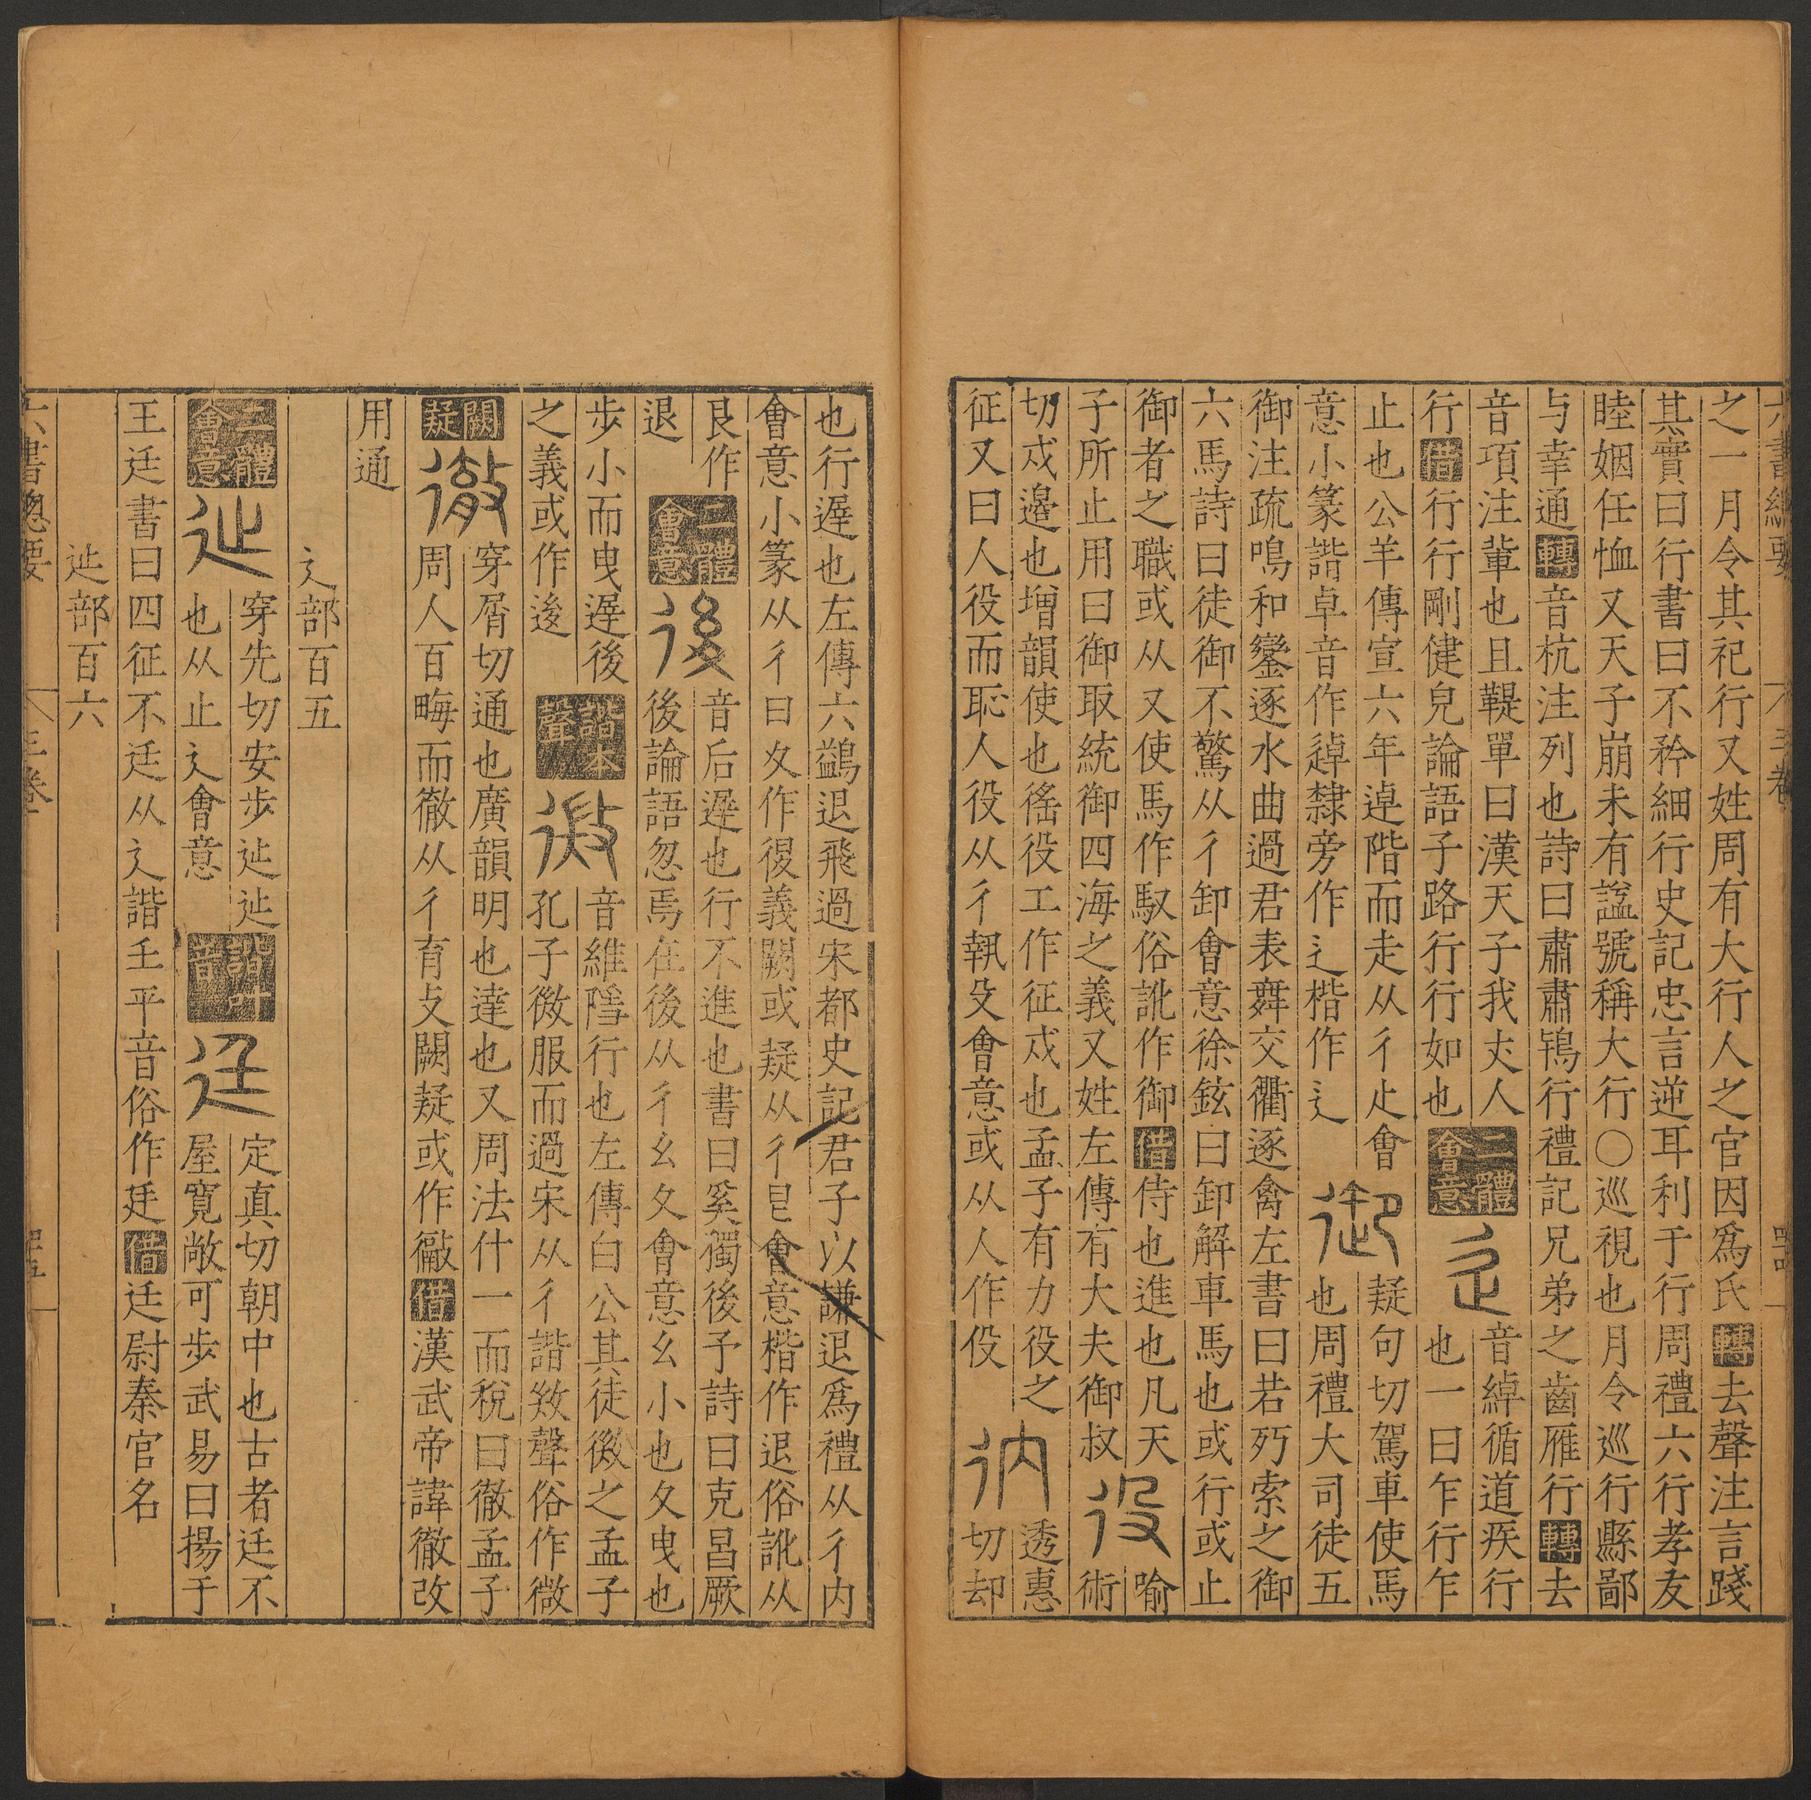 六書總要
三卷
四百四
之一月令其祀行又姓周有大行人之官因爲氏轉去聲注言踐
其實曰行書曰不矜細行史記忠言逆耳利于行周禮六行孝友
睦姻任恤又天子崩未有謚號稱大行○巡視也月令巡行縣鄙
与幸通轉音杭注列也詩曰肅肅鴇行禮記兄弟之齒雁行轉去
音項注輩也且鞮單曰漢天子我丈人
音綽循道疾行
行借行行剛健皃論語子路行行如也
二體會意
辵
也一曰乍行乍
止也公羊傳宣六年逴階而走从彳止會
疑句切駕車使馬
意小篆諧卓音作逴隸旁作辶楷作辶
御
也周禮大司徒五
御注疏鳴和鑾逐水曲過君表舞交衢逐禽左書曰若朽索之御
六馬詩曰徒御不驚从彳卸會意徐鉉曰卸解車馬也或行或止
御者之職或从又使馬作馭俗訛作御借侍也進也凡天
喻
子所止用曰御取統御四海之義又姓左傳有大夫御叔
役
術
切戍邉也增韻使也徭役工作征戍也孟子有力役之
透惠
征又曰人役而恥人役从彳執殳會意或从人作伇
㣕
切却
也行遟也左傳六鷁退飛過宋都史記君子以謙退爲禮从彳内
會意小篆从彳日夊作復義闕或疑从彳皀會意楷作退俗訛从
艮作
退
二體會意
後
音后遟也行不進也書曰奚獨後予詩曰克昌厥
後論語忽焉在後从彳幺夊會意幺小也夊曳也
步小而曳遟後
之義或作後
諧本聲
微
音維隱行也左傳白公其徒微之孟子
孔子微服而過宋从彳諧敚聲俗作微
闕疑
徹
穿屑切通也廣韻明也達也又周法什一而稅曰徹孟子
周人百畮而徹从彳育攴闕疑或作徹借漢武帝諱徹改
用通
廴部百五
二體會意
延
穿先切安步延延
也从止廴會意
諧叶音
廷
定真切朝中也古者廷不
屋寬敞可步武易曰揚于
王廷書曰四征不廷从廴諧壬平音俗作廷借廷尉秦官名
延部百六
六書總要
三卷
四百五